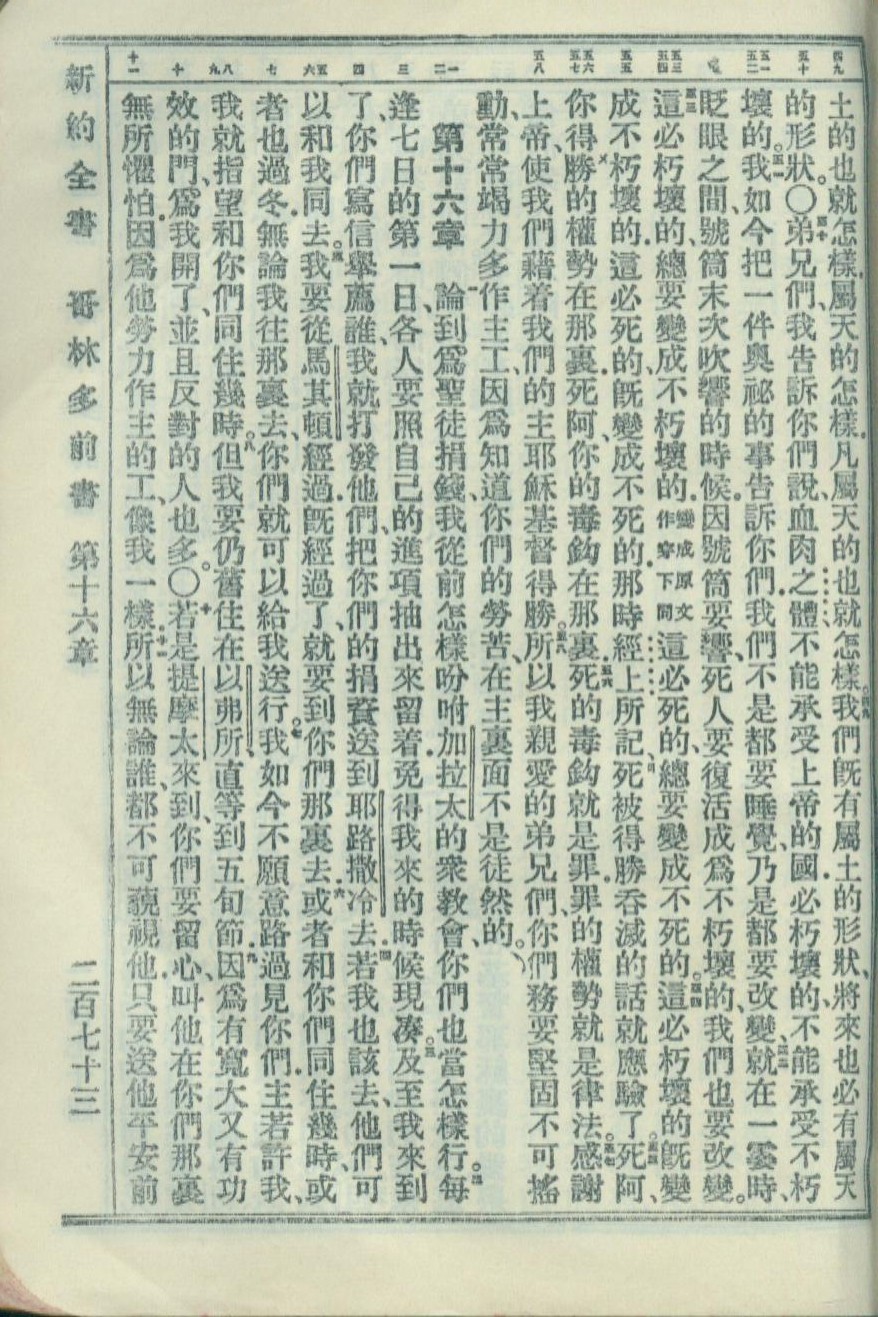 四九 五十 五一 五二 五三 五四 五五 五六 五七 五八 一 二 三 四 五 六 七 八 九 十 十一
土的也就怎樣、屬天的怎樣、凡屬天的也就怎樣。我們旣有屬土的形狀、將來也必有屬天
的形狀。〇弟兄們、我告訴你們說、血肉之體、不能承受上帝的國、必朽壞的、不能承受不朽
壞的。我如今把一件奧祕的事告訴你們、我們不是都要睡覺、乃是都要改變、就在一霎時、
眨眼之間、號筒末次吹響的時候、因號筒要響、死人要復活、成爲不朽壞的、我們也要改變。
這必朽壞的、總要變成不朽壞的、變成原文作穿下同這必死的、總要變成不死的。這必朽壞的旣變
成不朽壞的、這必死的旣變成不死的、那時經上所記、死被得勝呑滅的話就應驗了。死阿、
你得勝的權勢在那裏、死阿、你的毒鈎在那裏。死的毒鈎就是罪、罪的權勢就是律法。感謝
上帝、使我們藉着我們的主耶穌基督得勝。所以我親愛的弟兄們、你們務要堅固不可搖
動、常常竭力多作主工、因爲知道你們的勞苦、在主裏面不是徒然的。
第十六章 論到爲聖徒捐錢、我從前怎樣吩咐加拉太的衆教會、你們也當怎樣行。每
逢七日的第一日、各人要照自己的進項抽出來留着、免得我來的時候現湊。及至我來到
了、你們寫信舉薦誰、我就打發他們、把你們的捐資送到耶路撒冷去。若我也該去、他們可
以和我同去。我要從馬其頓經過、旣經過了、就要到你們那裏去、或者和你們同住幾時、或
者也過冬、無論我往那裏去、你們就可以給我送行。我如今不願意路過見你們、主若許我、
我就指望和你們同住幾時。但我要仍舊住在以弗所、直等到五旬節、因爲有寬大又有功
效的門、爲我開了、並且反對的人也多。〇若是提摩太來到、你們要留心、叫他在你們那裏
無所懼怕、因爲他勞力作主的工、像我一樣、所以無論誰、都不可藐視他、只要送他平安前
新約全書 哥林多前書 第十六章 二百七十三